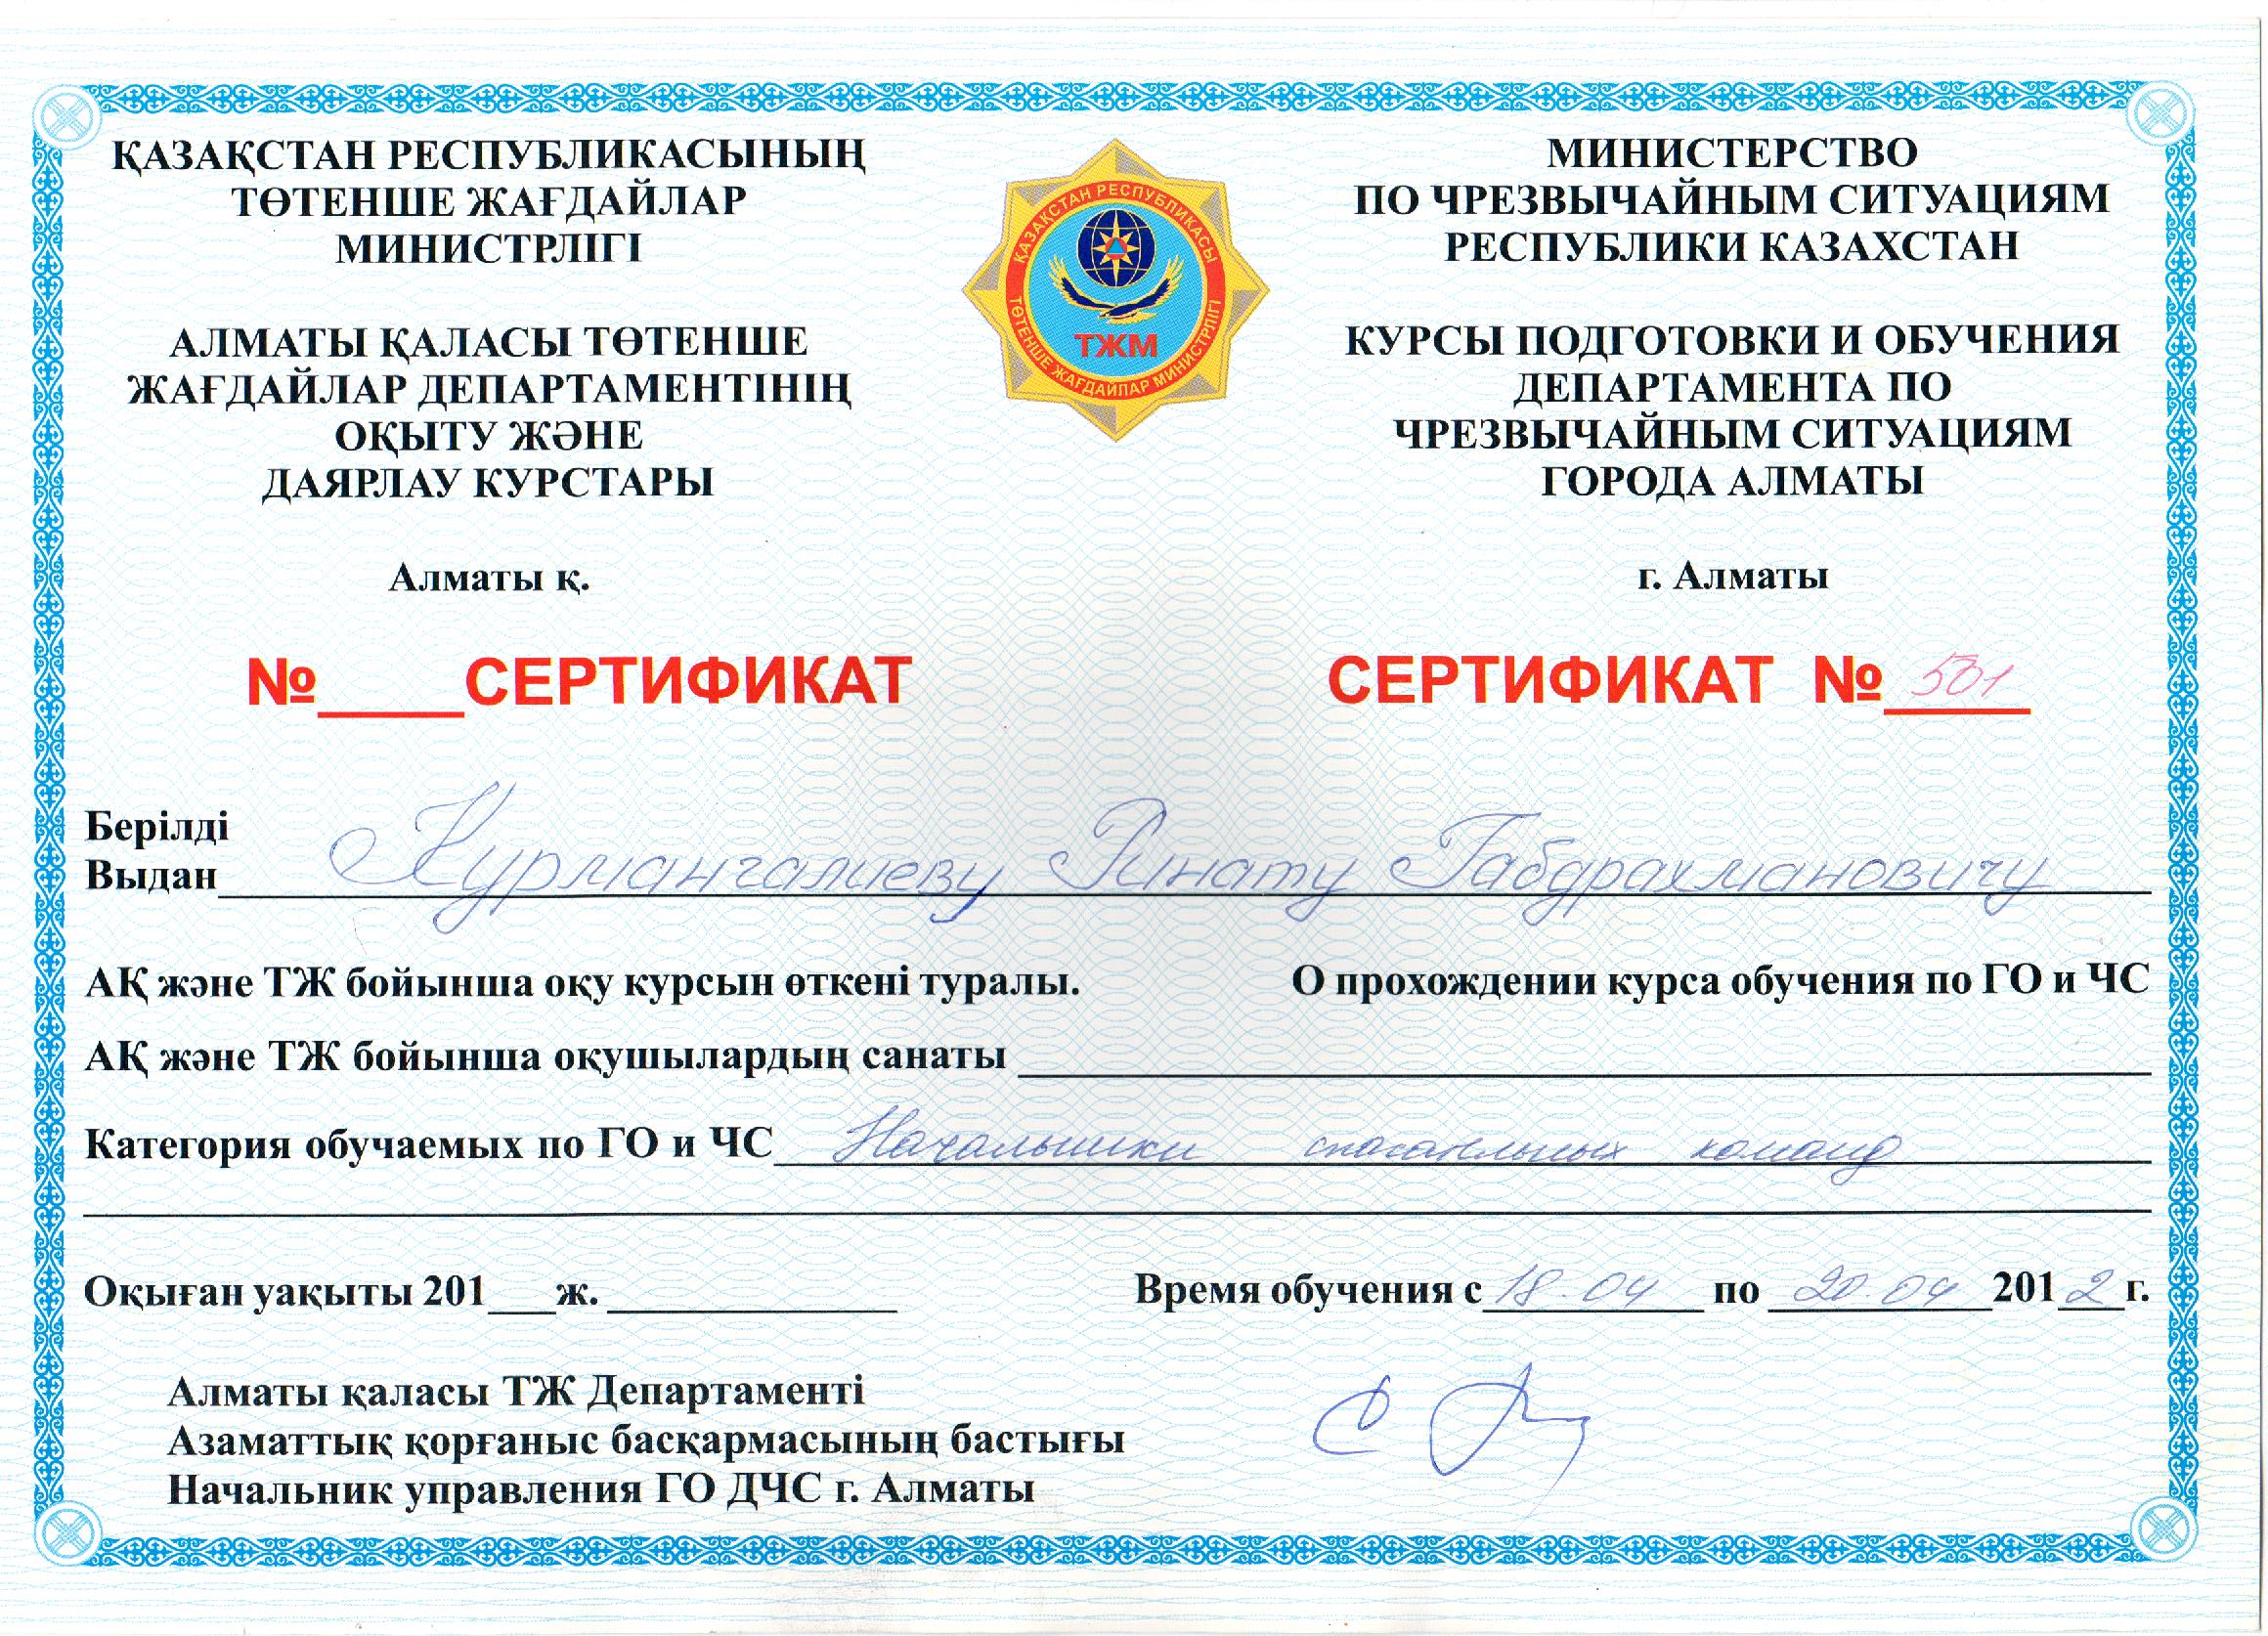 ҚАЗАҚСТАН РЕСПУБЛИКАСЫНЫҢ
ТӨТЕНШЕ ЖАҒДАЙЛАР
МИНИСТРЛІГІ
АЛМАТЫ ҚАЛАСЫ ТӨТЕНШЕ
ЖАҒДАЙЛАР ДЕПАРТАМЕНТІНІҢ
ОҚЫТУ ЖӘНЕ
ДАЯРЛАУ КУРСТАРЫ
Алматы қ.
№____СЕРТИФИКАТ
ҚАЗАҚСТАН РЕСПУБЛИКАСЫ
ТЖМ
ТӨТЕНШЕ ЖАҒДАЙЛАР МИНИСТРЛІГІ
МИНИСТЕРСТВО
ПО ЧРЕЗВЫЧАЙНЫМ СИТУАЦИЯМ
РЕСПУБЛИКИ КАЗАХСТАН
КУРСЫ ПОДГОТОВКИ И ОБУЧЕНИЯ
ДЕПАРТАМЕНТА ПО
ЧРЕЗВЫЧАЙНЫМ СИТУАЦИЯМ
ГОРОДА АЛМАТЫ
г. Алматы
СЕРТИФИКАТ № 501
Берілді
Выдан Курмангалиеву Ринату Габдрахмановичу
АҚ және ТЖ бойынша оқу курсын өткені туралы. О прохождении курса обучения по ГО и ЧС
АҚ және ТЖ бойынша оқушылардың санаты
Категория обучаемых по ГО и ЧС Начальники спасательных команд
Оқыған уақыты 201___ж. Время обучения с 18.04 по 20.04 2012 г.
Алматы қаласы ТЖ Департаменті
Азаматтық қорғаныс басқармасының бастығы
Начальник управления ГО ДЧС г. Алматы